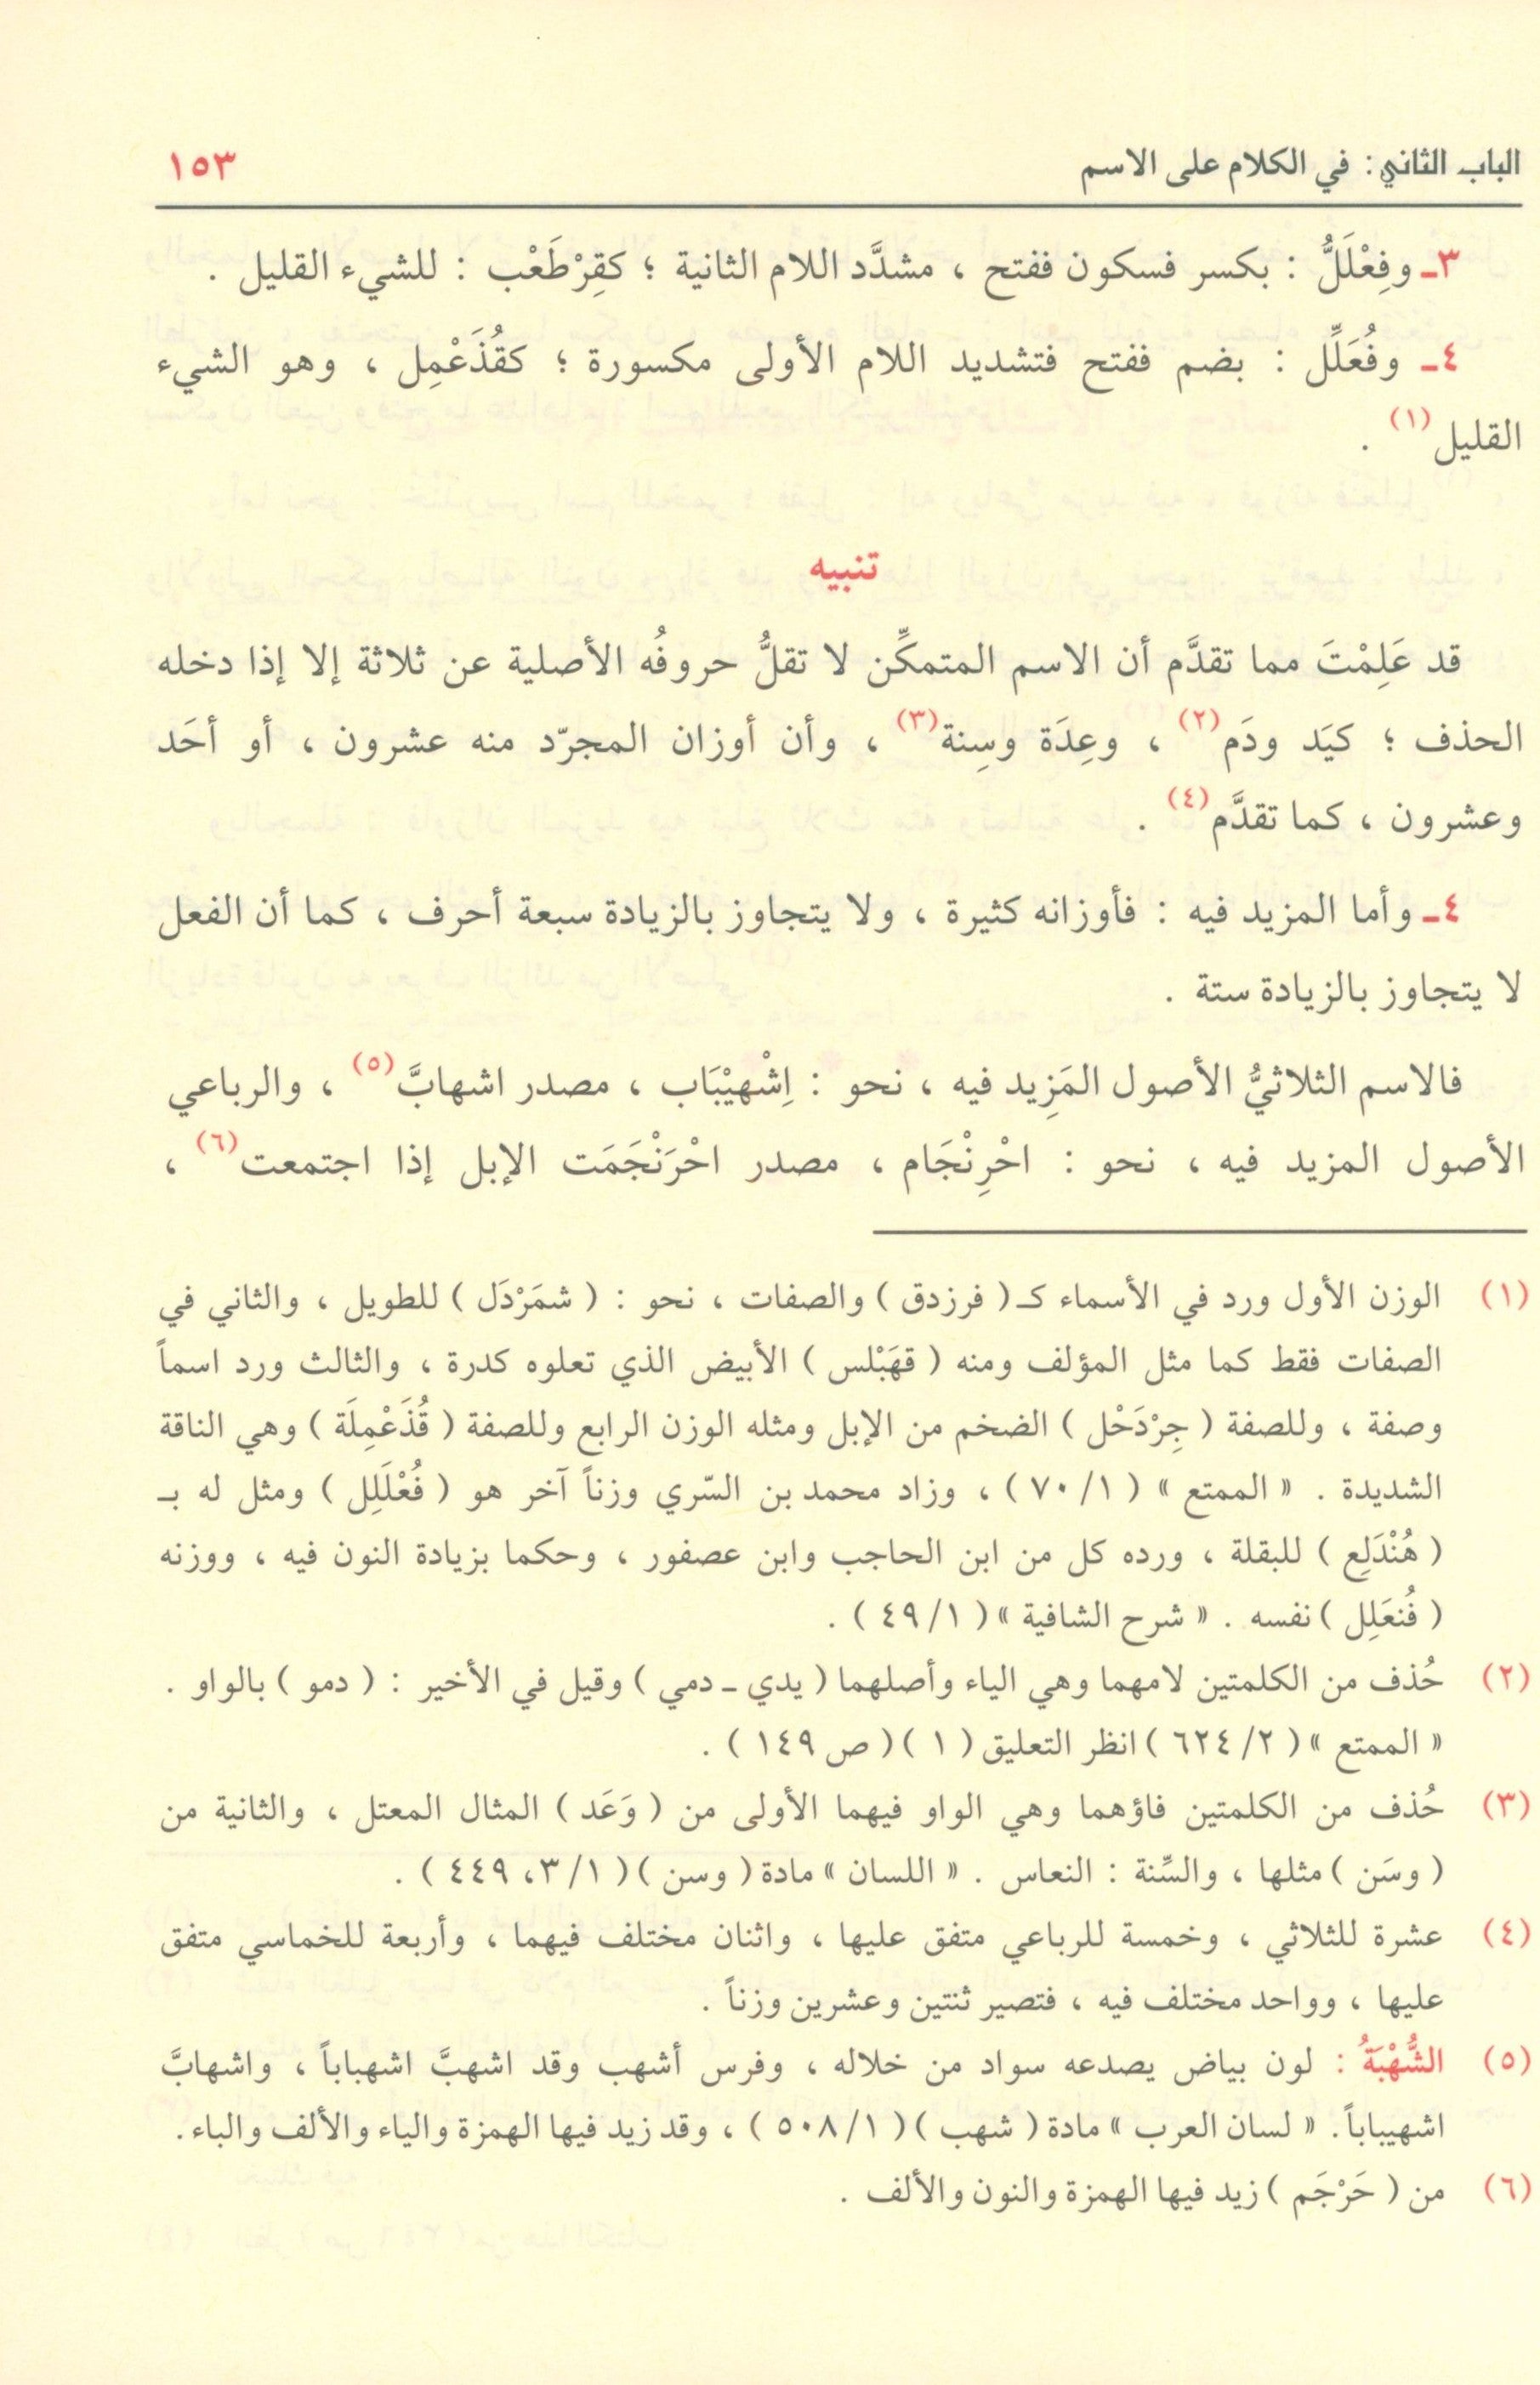 الباب الثاني: في الكلام على الاسم ١٥٣
٣ـ وفِعْلَلٌّ : بكسر فسكون ففتح ، مشدَّد اللام الثانية ؛ كقِرْطَعْب : للشيء القليل .
٤ـ وفُعَلِّل : بضم ففتح فتشديد اللام الأولى مكسورة ؛ كقُذَعْمِل ، وهو الشيء
القليل(١) .
تنبيه
قد عَلِمْتَ مما تقدَّم أن الاسم المتمكِّن لا تقلُّ حروفُه الأصلية عن ثلاثة إلا إذا دخله
الحذف ؛ كيَد ودَم(٢) ، وعِدَة وسِنة(٣) ، وأن أوزان المجرّد منه عشرون ، أو أحَد
وعشرون ، كما تقدَّم(٤) .
٤ـ وأما المزيد فيه : فأوزانه كثيرة ، ولا يتجاوز بالزيادة سبعة أحرف ، كما أن الفعل
لا يتجاوز بالزيادة ستة .
فالاسم الثلاثيُّ الأصول المَزِيد فيه ، نحو : اِشْهِيْبَاب ، مصدر اشهابَّ(٥) ، والرباعي
الأصول المزيد فيه ، نحو : احْرِنْجَام ، مصدر احْرَنْجَمَت الإبل إذا اجتمعت(٦) ،
(١) الوزن الأول ورد في الأسماء كـ ( فرزدق ) والصفات ، نحو : ( شمَرْدَل ) للطويل ، والثاني في
الصفات فقط كما مثل المؤلف ومنه ( قهَبْلس ) الأبيض الذي تعلوه كدرة ، والثالث ورد اسماً
وصفة ، وللصفة ( جِرْدَحْل ) الضخم من الإبل ومثله الوزن الرابع وللصفة ( قُذَعْمِلَة ) وهي الناقة
الشديدة . « الممتع » ( ١/ ٧٠ ) ، وزاد محمد بن السّري وزناً آخر هو ( فُعْلَلِل ) ومثل له بـ
( هُنْدَلِع ) للبقلة ، ورده كل من ابن الحاجب وابن عصفور ، وحكما بزيادة النون فيه ، ووزنه
( فُنعَلِل ) نفسه . « شرح الشافية » ( ١/ ٤٩ ) .
(٢) حُذف من الكلمتين لامهما وهي الياء وأصلهما ( يدي ـ دمي ) وقيل في الأخير : ( دمو ) بالواو .
« الممتع » ( ٢/ ٦٢٤ ) انظر التعليق ( ١ ) ( ص ١٤٩ ) .
(٣) حُذف من الكلمتين فاؤهما وهي الواو فيهما الأولى من ( وَعَد ) المثال المعتل ، والثانية من
( وسَن ) مثلها ، والسِّنة : النعاس . « اللسان » مادة ( وسن ) ( ١/ ٣، ٤٤٩ ) .
(٤) عشرة للثلاثي ، وخمسة للرباعي متفق عليها ، واثنان مختلف فيهما ، وأربعة للخماسي متفق
عليها ، وواحد مختلف فيه ، فتصير ثنتين وعشرين وزناً .
(٥) الشُّهْبَةُ : لون بياض يصدعه سواد من خلاله ، وفرس أشهب وقد اشهبَّ اشهباباً ، واشهابَّ
اشهيباباً. « لسان العرب » مادة ( شهب ) ( ١/ ٥٠٨ ) ، وقد زيد فيها الهمزة والياء والألف والباء .
(٦) من ( حَرْجَم ) زيد فيها الهمزة والنون والألف .